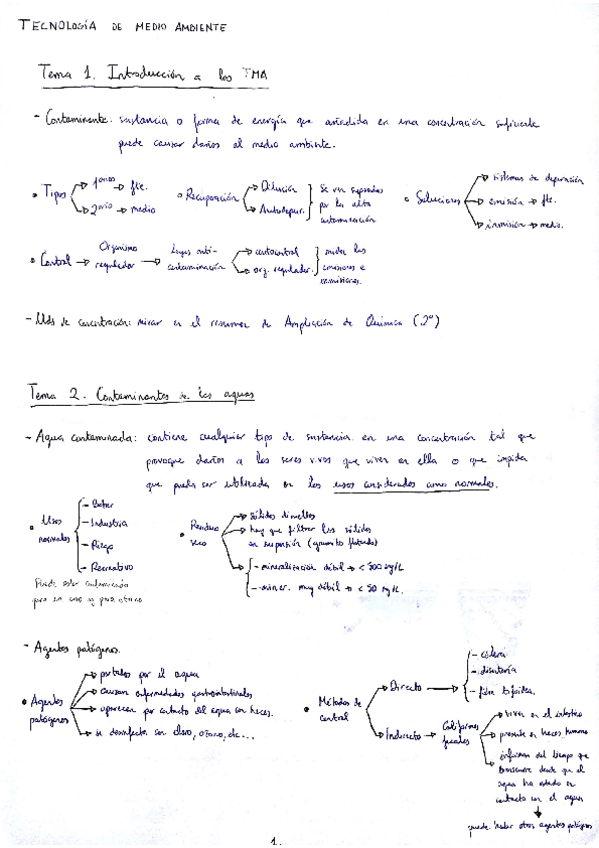 TECNOLOGÍA DE MEDIO AMBIENTE
Tema 1. Introducción a las TMA
- Contaminante: sustancia o forma de energía que añadida en una concentración suficiente
puede causar daños al medio ambiente.
• Tipos → 1arios → fte.
→ 2arios → medio
• Recuperación → Dilución
→ Autodepur.
Se ven superados
por la alta
contaminación
• Soluciones → sistemas de depuración
→ emisión → fte.
→ inmisión → medio.
• Control → Organismo
regulador → Leyes anti-
contaminación → autocontrol
→ org. regulador.
miden las
emisiones e
inmisiones.
- Uds de concentración: mirar en el resumen de Ampliación de Química (2º)
Tema 2. Contaminantes de las aguas
- Agua contaminada: contiene cualquier tipo de sustancia en una concentración tal que
provoque daños a los seres vivos que viven en ella o que impida
que pueda ser utilizada en los usos considerados como normales.
• Usos
normales
- Beber
- Industria
- Riego
- Recreativo
Puede estar contaminada
para un uso y para otro no
• Residuo
seco
→ sólidos disueltos
→ hay que filtrar los sólidos
en suspensión
→ - mineralización débil → < 500 mg/L
- miner. muy débil → < 50 mg/L.
- Agentes patógenos.
• Agentes
patógenos
→ portados por el agua
→ causan enfermedades gastrointestinales
→ aparecen por contacto del agua con heces.
→ se desinfecta con cloro, ozono, etc...
• Métodos de
control
→ Directo →
- cólera
- disentería
- fiebre tifoidea.
→ Indirecto → Coliformes
fecales
→ viven en el intestino
→ presente en heces humanas
→ informan del tiempo que
transcurre desde que el
agua ha estado en
contacto con el agua
puede haber otros agentes patógenos
1.